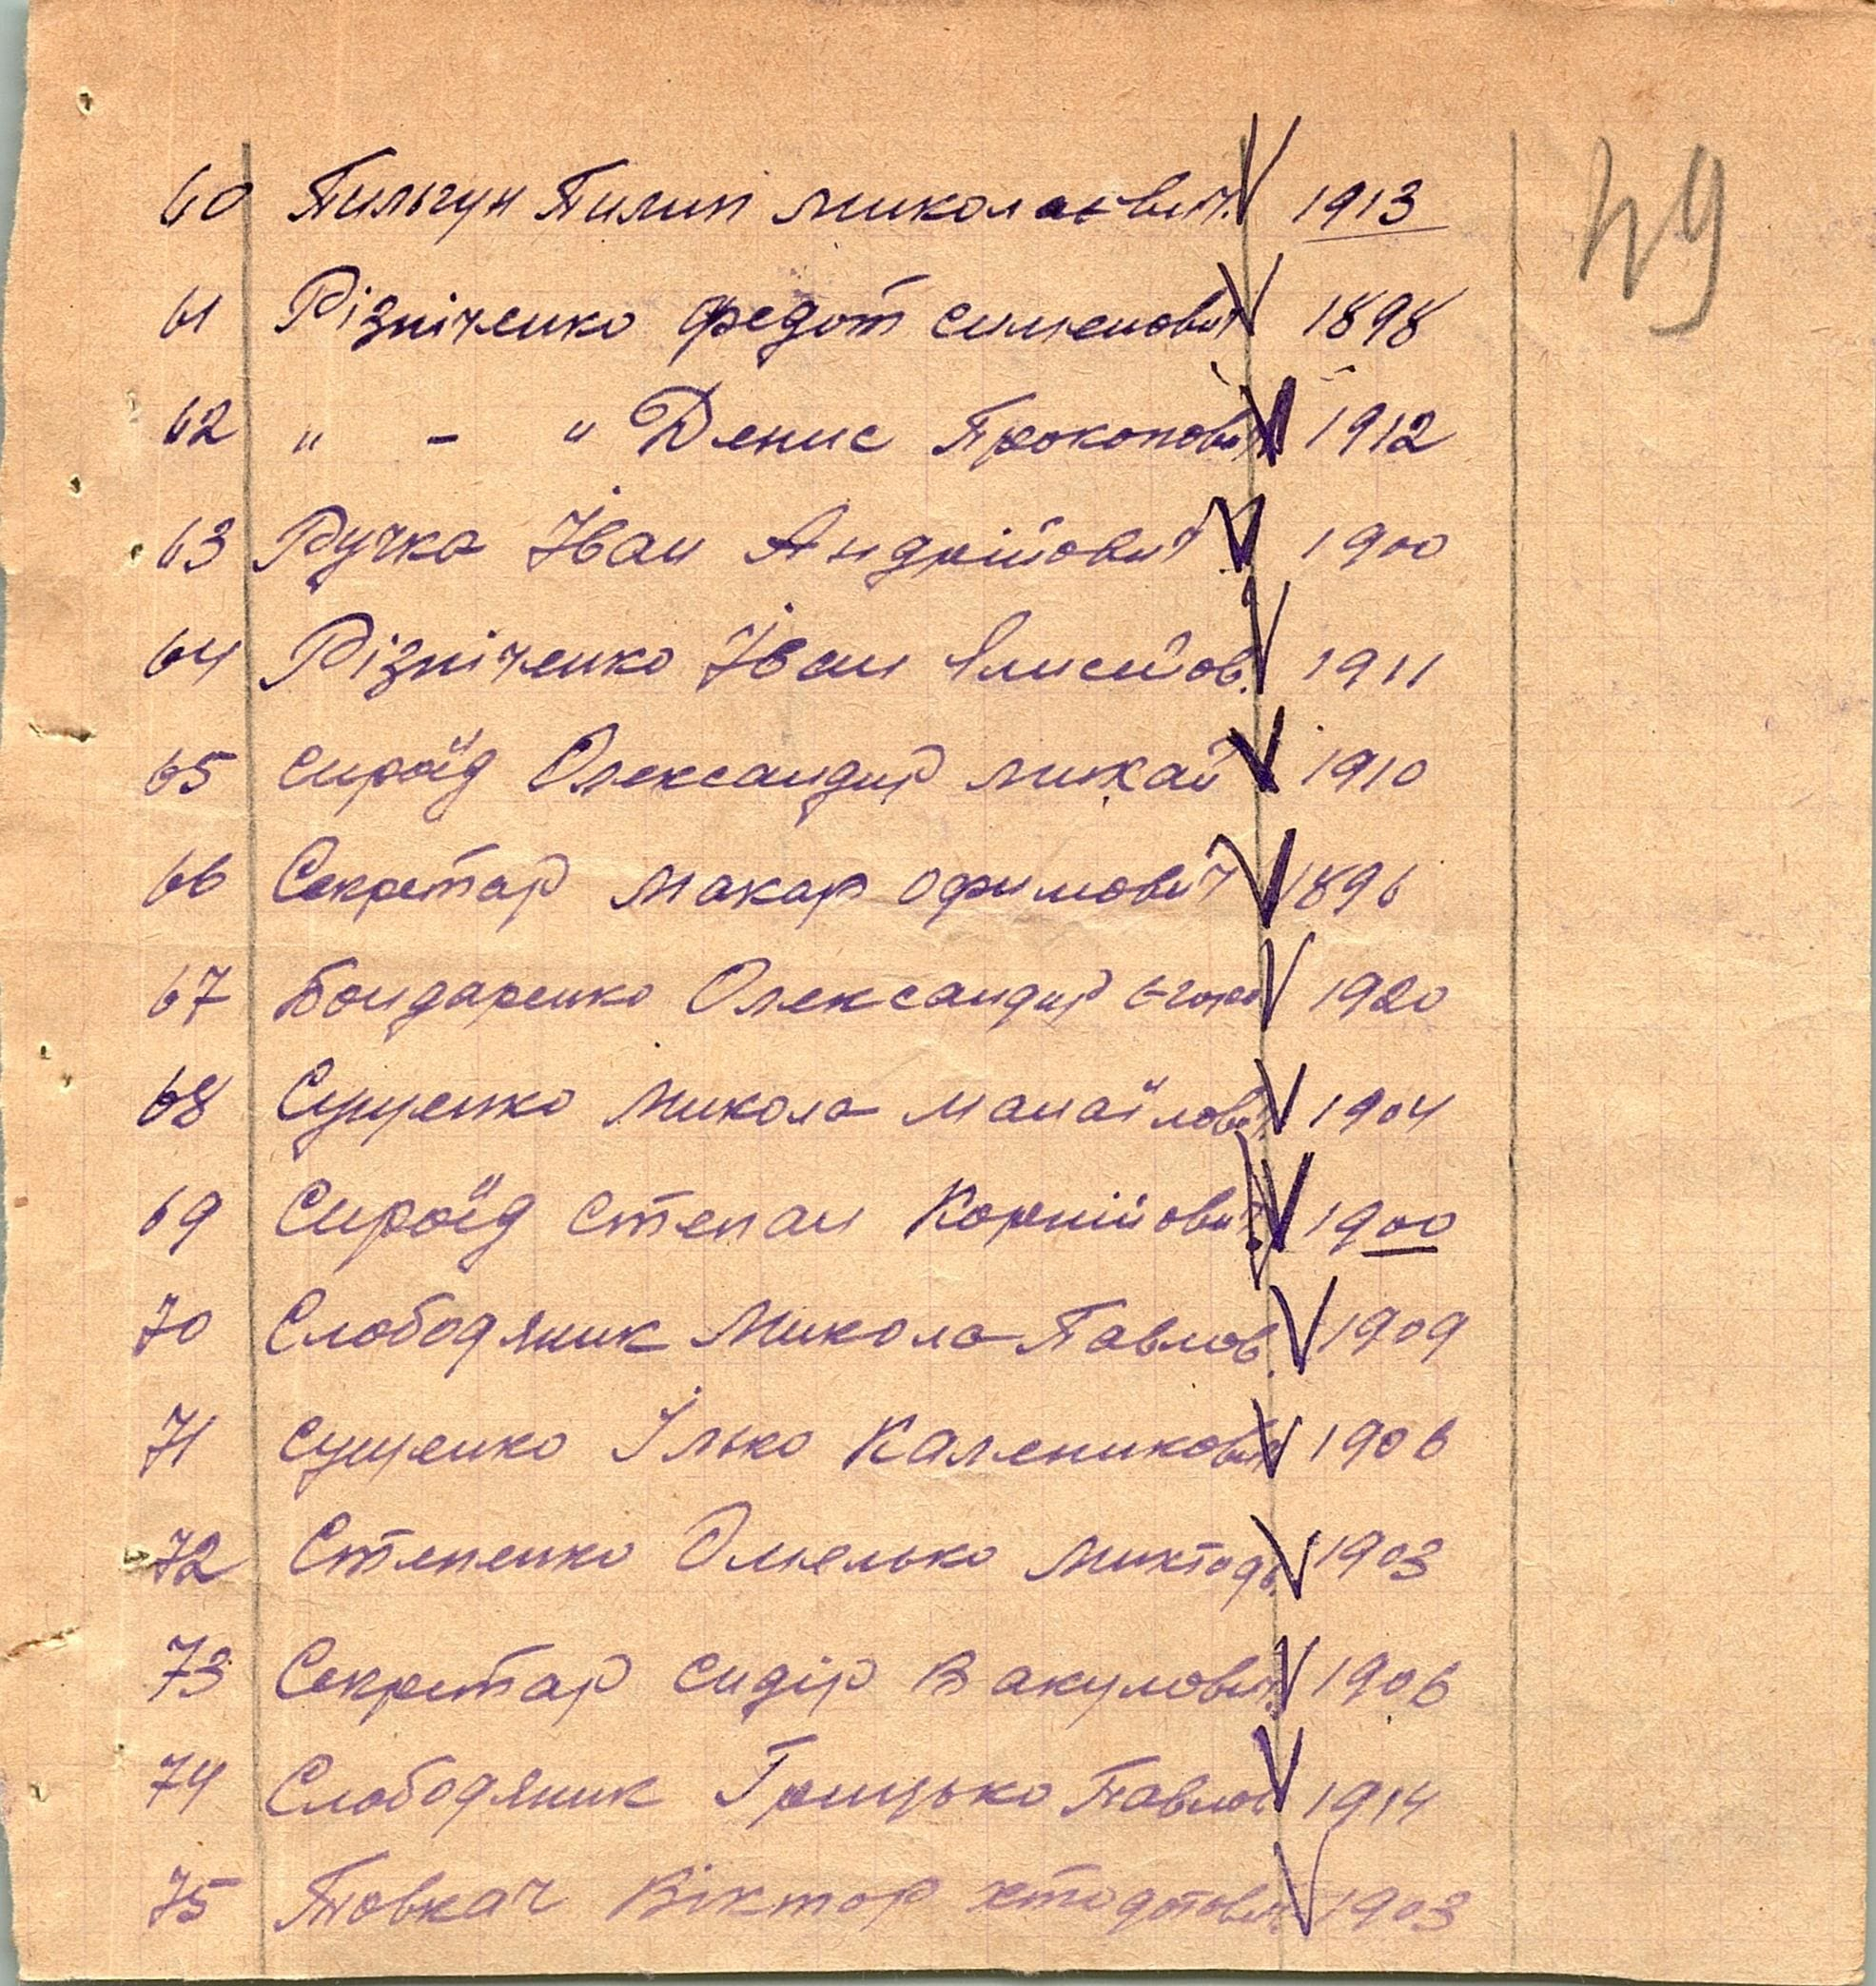 49
60 Пильгун Пилип Миколаєвич. 1913
61 Різніченко Федот Семенович 1898
62 " – " Денис Прокопович 1912
63 Ручка Іван Андрійович 1900
64 Різніченко Іван Єлисейов. 1911
65 Сироїд Олександир Михай 1910
66 Секретар Макар Офимович 1896
67 Бондаренко Олександир Єгоро 1920
68 Сущенко Микола Манайлович 1904
69 Сироїд Степан Корнійович 1900
70 Слободяник Микола Павлов. 1909
71 Сущенко Ілько Каленикович 1906
72 Степенко Омелько 1903
73 Секретар Сидір Вакулович 1906
74 Слободяник Грицько Павлов 1914
75 Товкач Віктор 1903